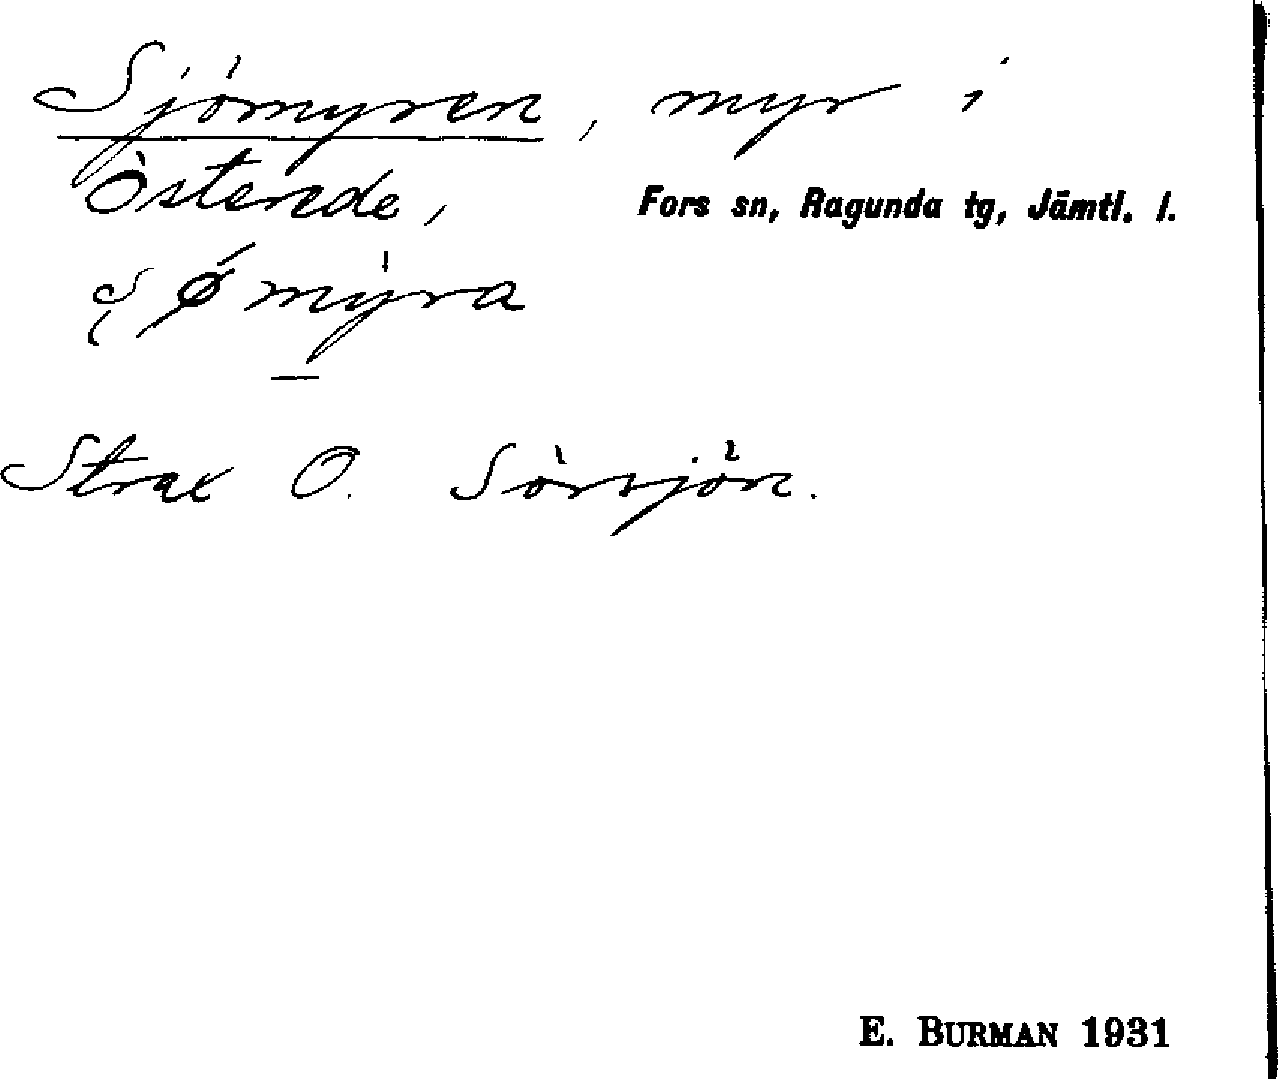 Sjömyren, myr i
Österede, Fors sn, Ragunda tg, Jämtl. l.
myra
Strax O. Sörsjön.
E. BURMAN 1931